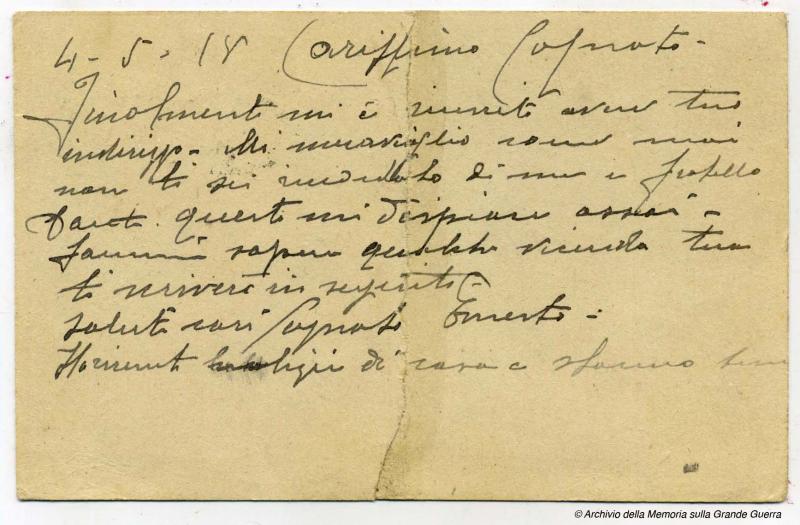 4-5-18 Cariffimo Cognato-
Finalmente mi è riuscito avere tuo
indirizzo- Mi meraviglio come mai
non ti sei ricordato di me e fratello
Dante. questo mi dispiace assai-
fammi sapere qualche vicenda tua
ti scriverò in seguito-
saluti cari Cognato Ernesto-
di casa e stanno bene
© Archivio della Memoria sulla Grande Guerra